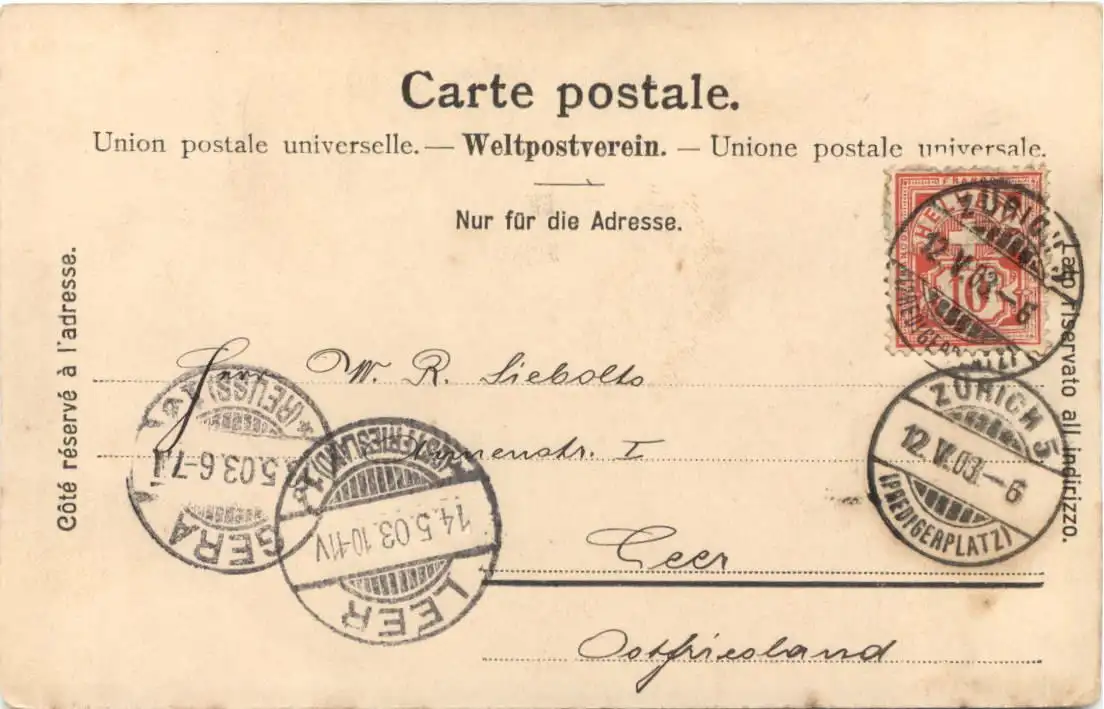 Carte postale.
Union postale universelle. — Weltpostverein. — Unione postale universale.
Nur für die Adresse.
Côté réservé à l'adresse.
Lato riservato all indirizzo.
HELVETIA
10
ZÜRICH
12.V.03.–6
ZÜRICH 5
12.V.03–6
(PREDIGERPLATZ)
Herr W. R. Siebolts
I
Leer
Ostfriesland
GERA
(REUSS)
5.03.6-7
LEER
(OSTFRIESLAND)
14.5.03.10-11V